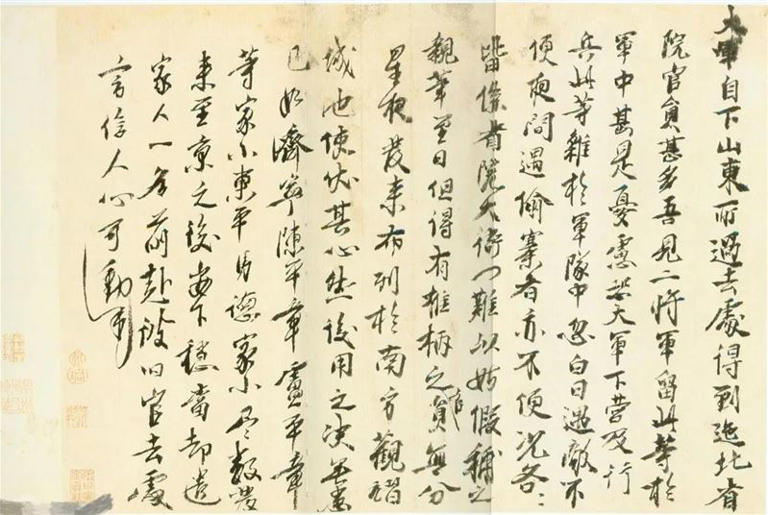 大軍自下山東所過去處得到迤北省
院官員甚多吾見二將軍留此等於
軍中甚是憂慮恐大軍下營及行
兵此等雜於軍隊中忽白日遇敵不
便夜間遇偷寨者亦不便況各〻
皆係省院大衙門難以姑假補之
親筆至日但得有椎柄之官員無分
星夜發來布列於南方觀
城池使伏其心然後用之決無患
已如濟寧陳平章盧平章
等家小東平馬德家小尽数發
来至京之後安下穩當却遣
家人一名前赴彼旧官去處
言信人心可動